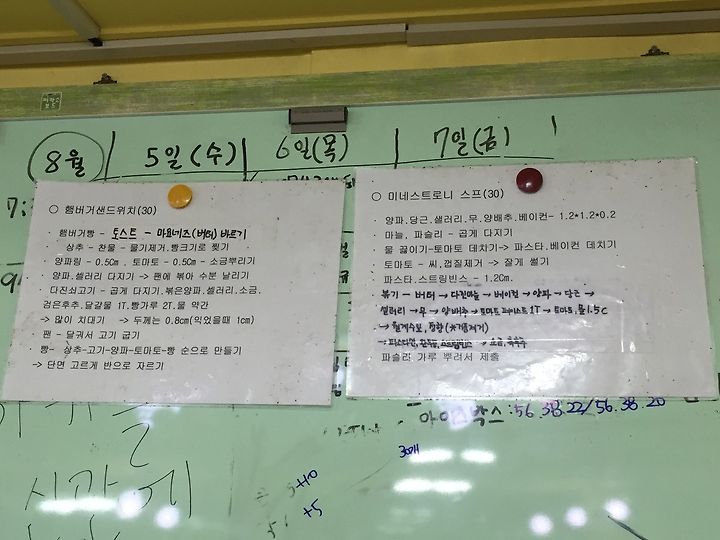 8월 5일(수) 6일(목) 7일(금)
○ 햄버거샌드위치(30)
햄버거빵 - 토스트 - 마요네즈(버터)바르기
상추 - 찬물 - 물기제거.빵크기로 찢기
양파링 - 0.5Cm . 토마토 - 0.5Cm - 소금뿌리기
양파.샐러리 다지기 -> 팬에 볶아 수분 날리기
다진쇠고기 - 곱게 다지기.볶은양파.샐러리.소금.
검은후추.달걀물 1T.빵가루 2T.물 약간
-> 많이 치대기 -> 두께는 0.8cm(익었을때 1cm)
팬 - 달궈서 고기 굽기
빵- 상추-고기-양파-토마토-빵 순으로 만들기
-> 단면 고르게 반으로 자르기
○ 미네스트로니 스프(30)
양파.당근.샐러리.무.양배추.베이컨- 1.2*1.2*0.2
마늘, 파슬리 - 곱게 다지기
물 끓이기-토마토 데차기-> 파스타.베이컨 데치기
토마토 - 씨,껍질제거 -> 잘게 썰기
파스타.스트링빈스 - 1.2Cm.
볶기 - 버터 → 다진마늘 → 베이컨 → 양파 → 당근 →
샐러리 → 무 → 양배추 → 토마토 페이스트 1T → 토마토, 물 1.5C
→ 월계수잎, 정향(거품제거)
파슬리 가루 뿌려서 제출
박스:56.38.22/56.38.20
30개
+10
+5